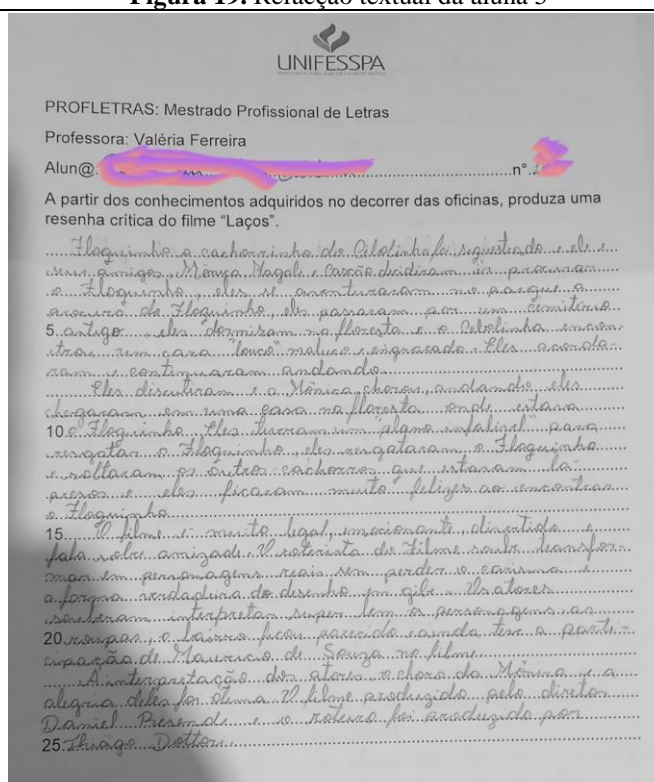 Figura 19. Refacção textual da aluna 3
UNIFESSPA
PROFLETRAS: Mestrado Profissional de Letras
Professora: Valéria Ferreira
Alun@: n°
A partir dos conhecimentos adquiridos no decorrer das oficinas, produza uma
resenha crítica do filme “Laços”.
Floquinho o cachorrinho do Cebolinha foi sequestrado e ele e
seus amigos, Mônica, Magali e Cascão decidiram ir procurar
o Floquinho, eles se aventuraram no parque a
procura do Floquinho, eles passaram por um cemitério
5 antigo eles dormiram na floresta e o Cebolinha encon-
trou um cara "louco" maluco e engraçado. Eles acorda-
ram e continuaram andando.
Eles discutiram e a Mônica chorou, andando eles
chegaram em uma casa na floresta onde estava
10 o Floquinho. Eles tiveram um "plano infalível" para
resgatar o Floquinho, eles resgataram o Floquinho
e soltaram os outros cachorros que estavam la
presos e eles ficaram muito felizes ao encontrar
o Floquinho.
15 O filme é muito legal, emocionante, divertido e
fala sobre amizade. O roterista do filme soube transfor-
mar em personagens reais sem perder o carisma e
a forma verdadeira do desenho em gibi. Os atores
souberam interpretar super bem os personagens as
20 roupas, o bairro ficou parecido e ainda teve a parti-
cipação de Mauricio de Souza no filme.
A interpretação dos atores o choro da Mônica e a
alegria deles foi ótima. O filme produzido pelo diretor
Daniel Resende e o roteiro foi produzido por
25 Thiago Dottori.